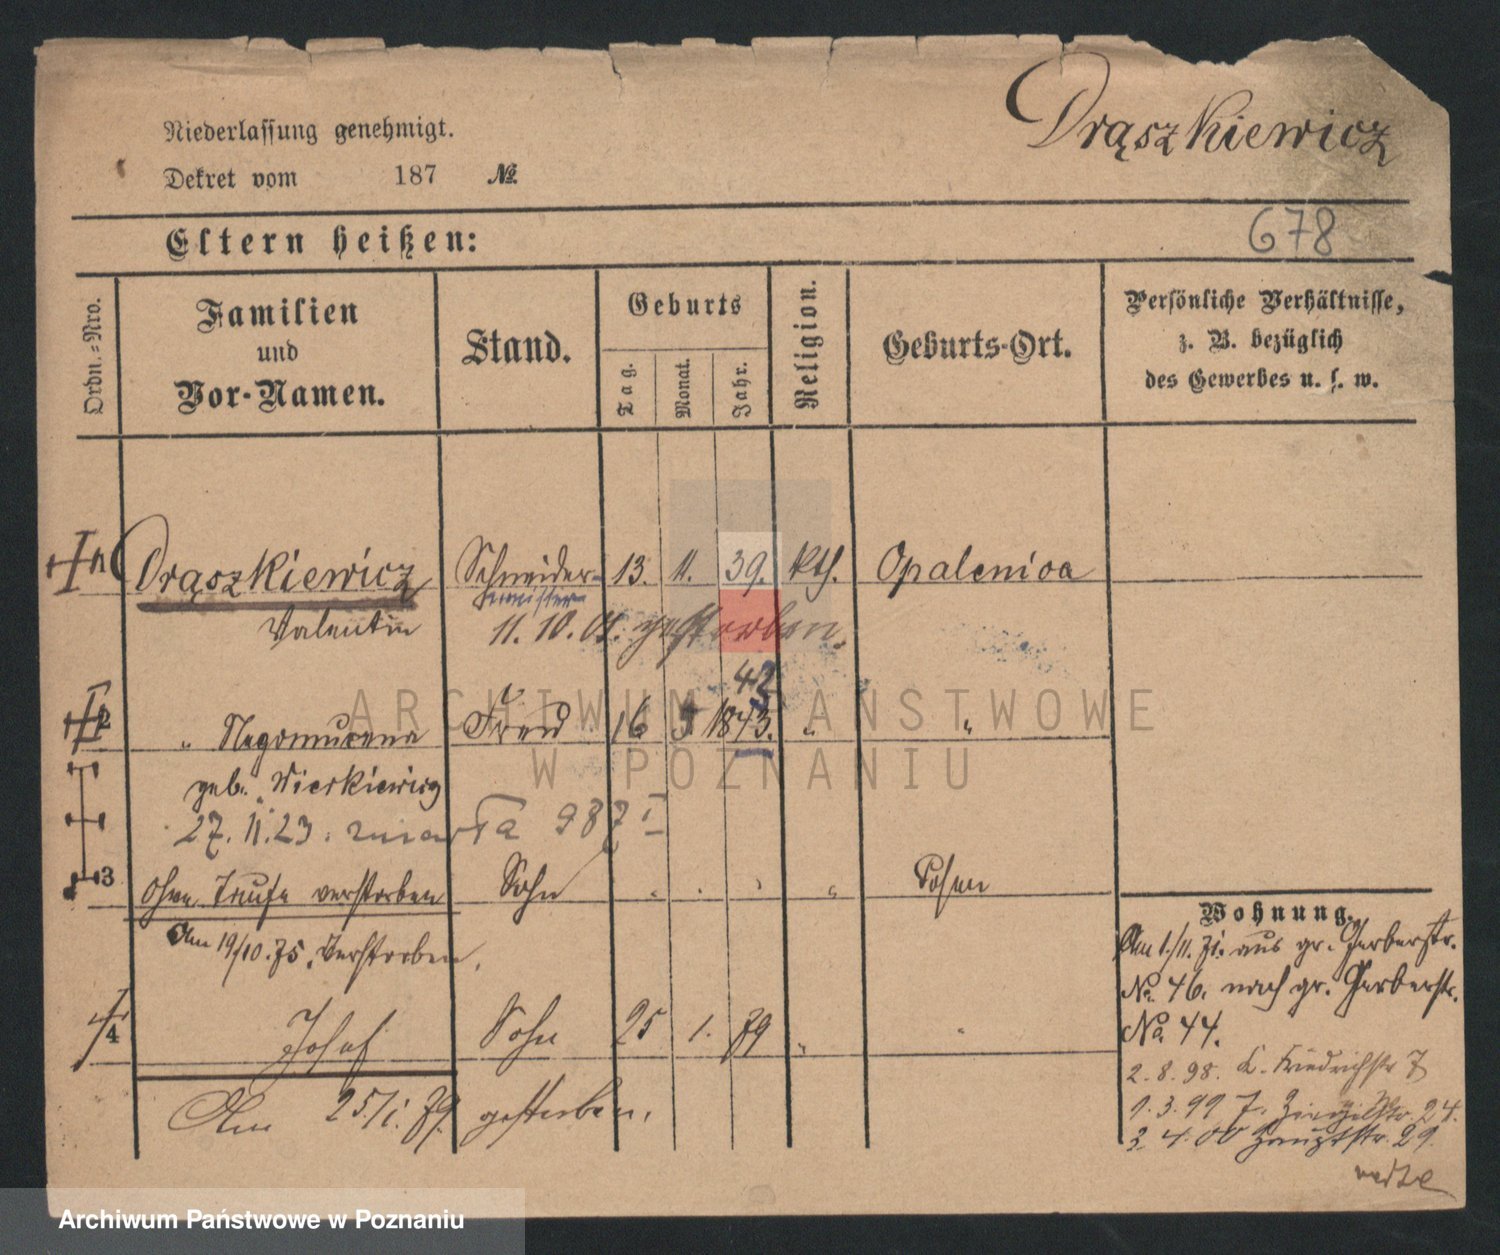 Drąszkiewicz
Niederlassung genehmigt.
Dekret vom 187 №
678
Eltern heißen:
Ordn.-Nro.
Familien und Vor-Namen.
Stand.
Geburts
Tag.
Monat.
Jahr.
Religion.
Geburts-Ort.
Persönliche Verhältnisse,
z. B. bezüglich
des Gewerbes u. s. w.
1 Drąszkiewicz Schneider- 13. 11. 39. kth. Opalenica
meister
Valentin 11. 10. 01. gestorben.
42
2 " Frau 16 1843. " "
geb. Wierkiewicz
27. 11. 23. zmarła 987 I
3 Ohne Taufe verstorben Sohn " " " " Posen
Am 19/10. 75. Verstorben.
4 Josef Sohn 25 1. 79 " "
Am 25/1. 79. gestorben.
Wohnung.
Am 1./11. 71. aus gr. Gerberstr.
No. 46. nach gr. Gerberstr.
No. 44.
2. 8. 98. K. Friedrichstr 7
1. 3. 99 24.
3. 4. 00 Hauptstr. 29.
ARCHIWUM PAŃSTWOWE
W POZNANIU
Archiwum Państwowe w Poznaniu